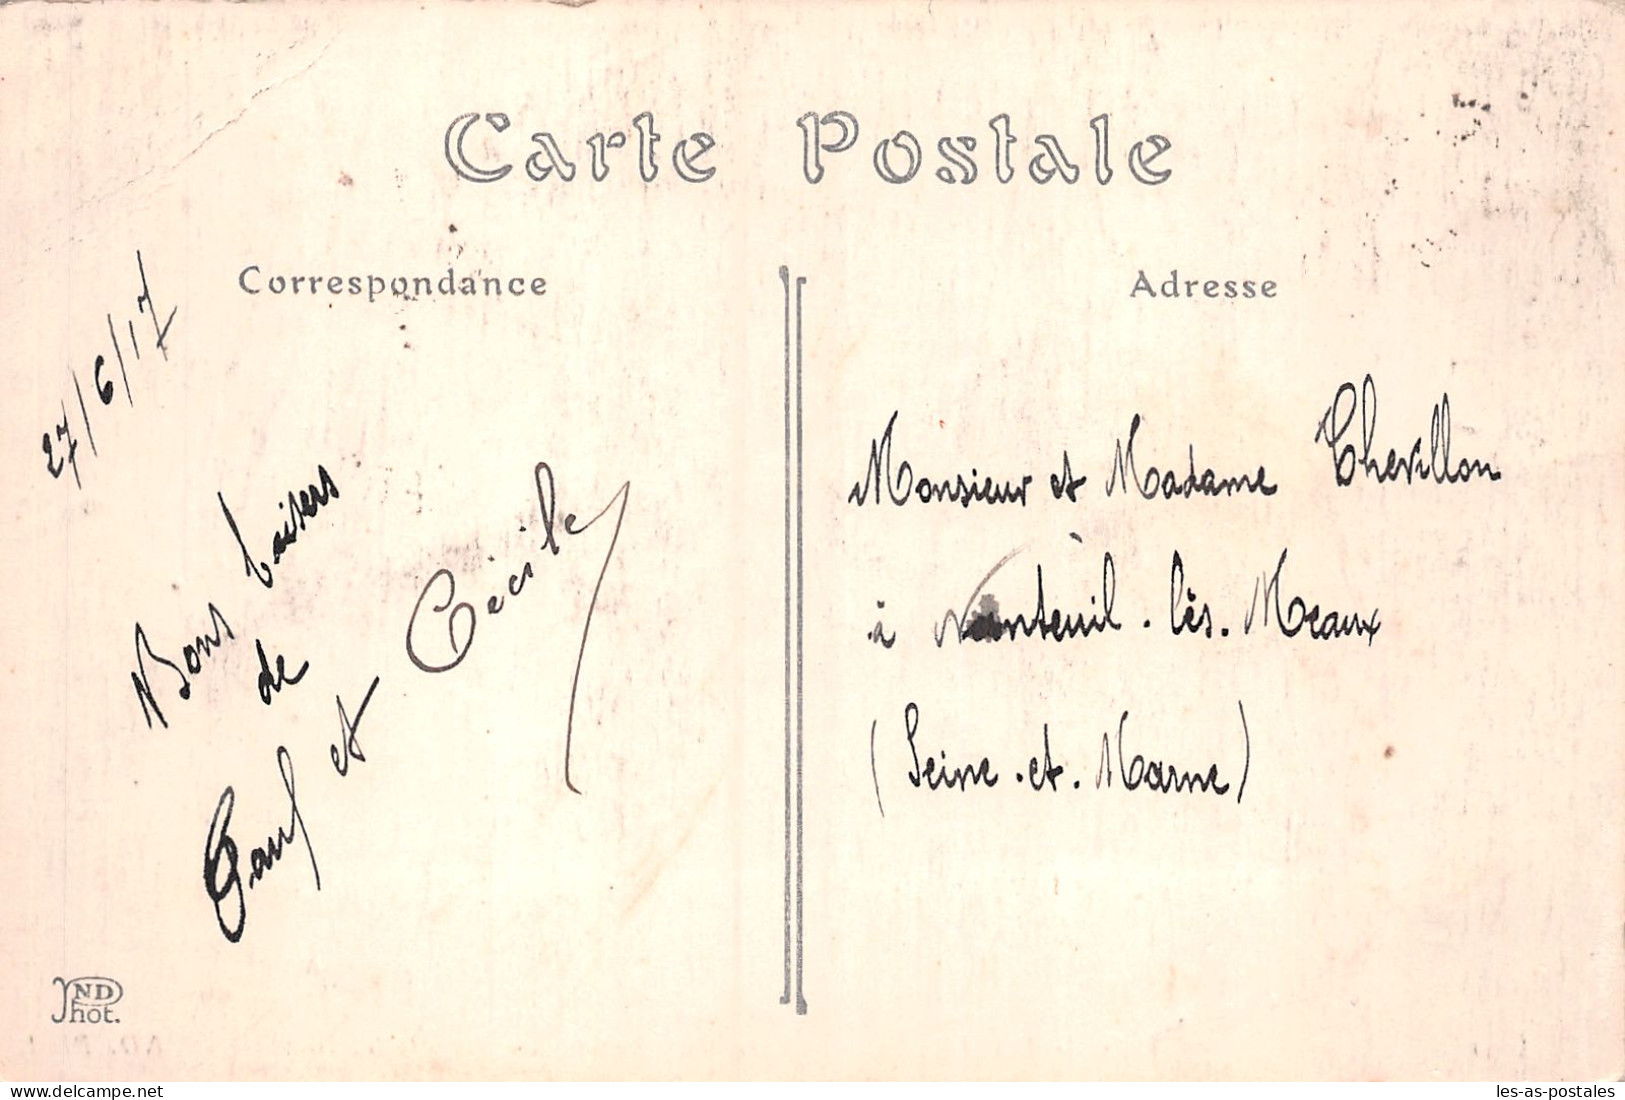 Carte Postale
Correspondance
27/6/17
Bons baisers
de
Paul et Cécile
Adresse
Monsieur et Madame Chevillon
à Nanteuil. lès. Meaux
(Seine. et. Marne)
ND
Phot.
Website : www.delcampe.net
les-as-postales